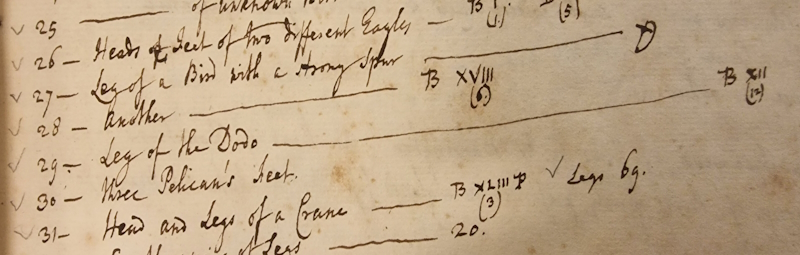 25 —— of unknown B I (1.) (5)
✓ 26 — Heads & Feet of two different Eagles —
✓ 27 — Leg of a Bird with a strong spur —— D
✓ 28 — Another —— B XVIII (6.)
✓ 29 — Leg of the Dodo —— B XII (12)
✓ 30 — three Pelican's feet.
✓ 31 — Head and Legs of a Crane —— B XLIII (3) ✓ Legs 69.
of Legs —— 20.